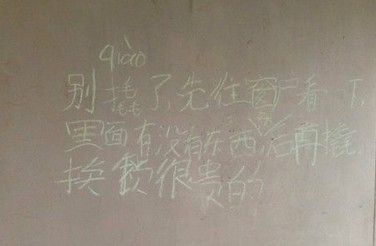 qiào
别撬了,先往窗户看一下,
里面有没有东西,后再撬
换锁很贵的